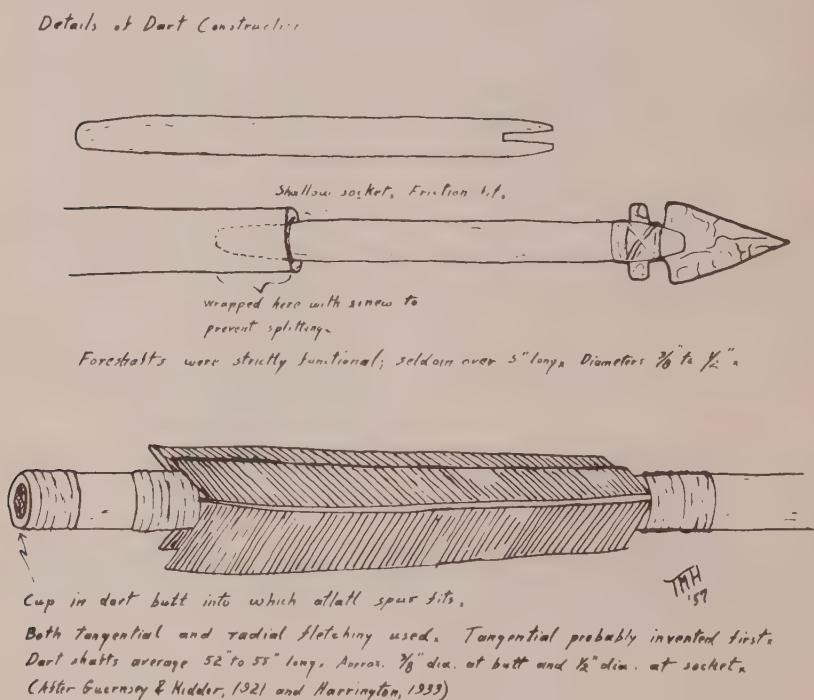 Details of Dart Construction
Shallow socket. Friction fit.
wrapped here with sinew to
prevent splitting.
Foreshafts were strictly functional; seldom over 5" long. Diameters 3/8" to 1/2".
TMH
'57
Cup in dart butt into which atlatl spur fits.
Both tangential and radial fletching used. Tangential probably invented first.
Dart shafts average 52" to 55" long. Approx. 3/8" dia. at butt and 1/2" dia. at socket.
(After Guernsey & Kidder, 1921 and Harrington, 1933)